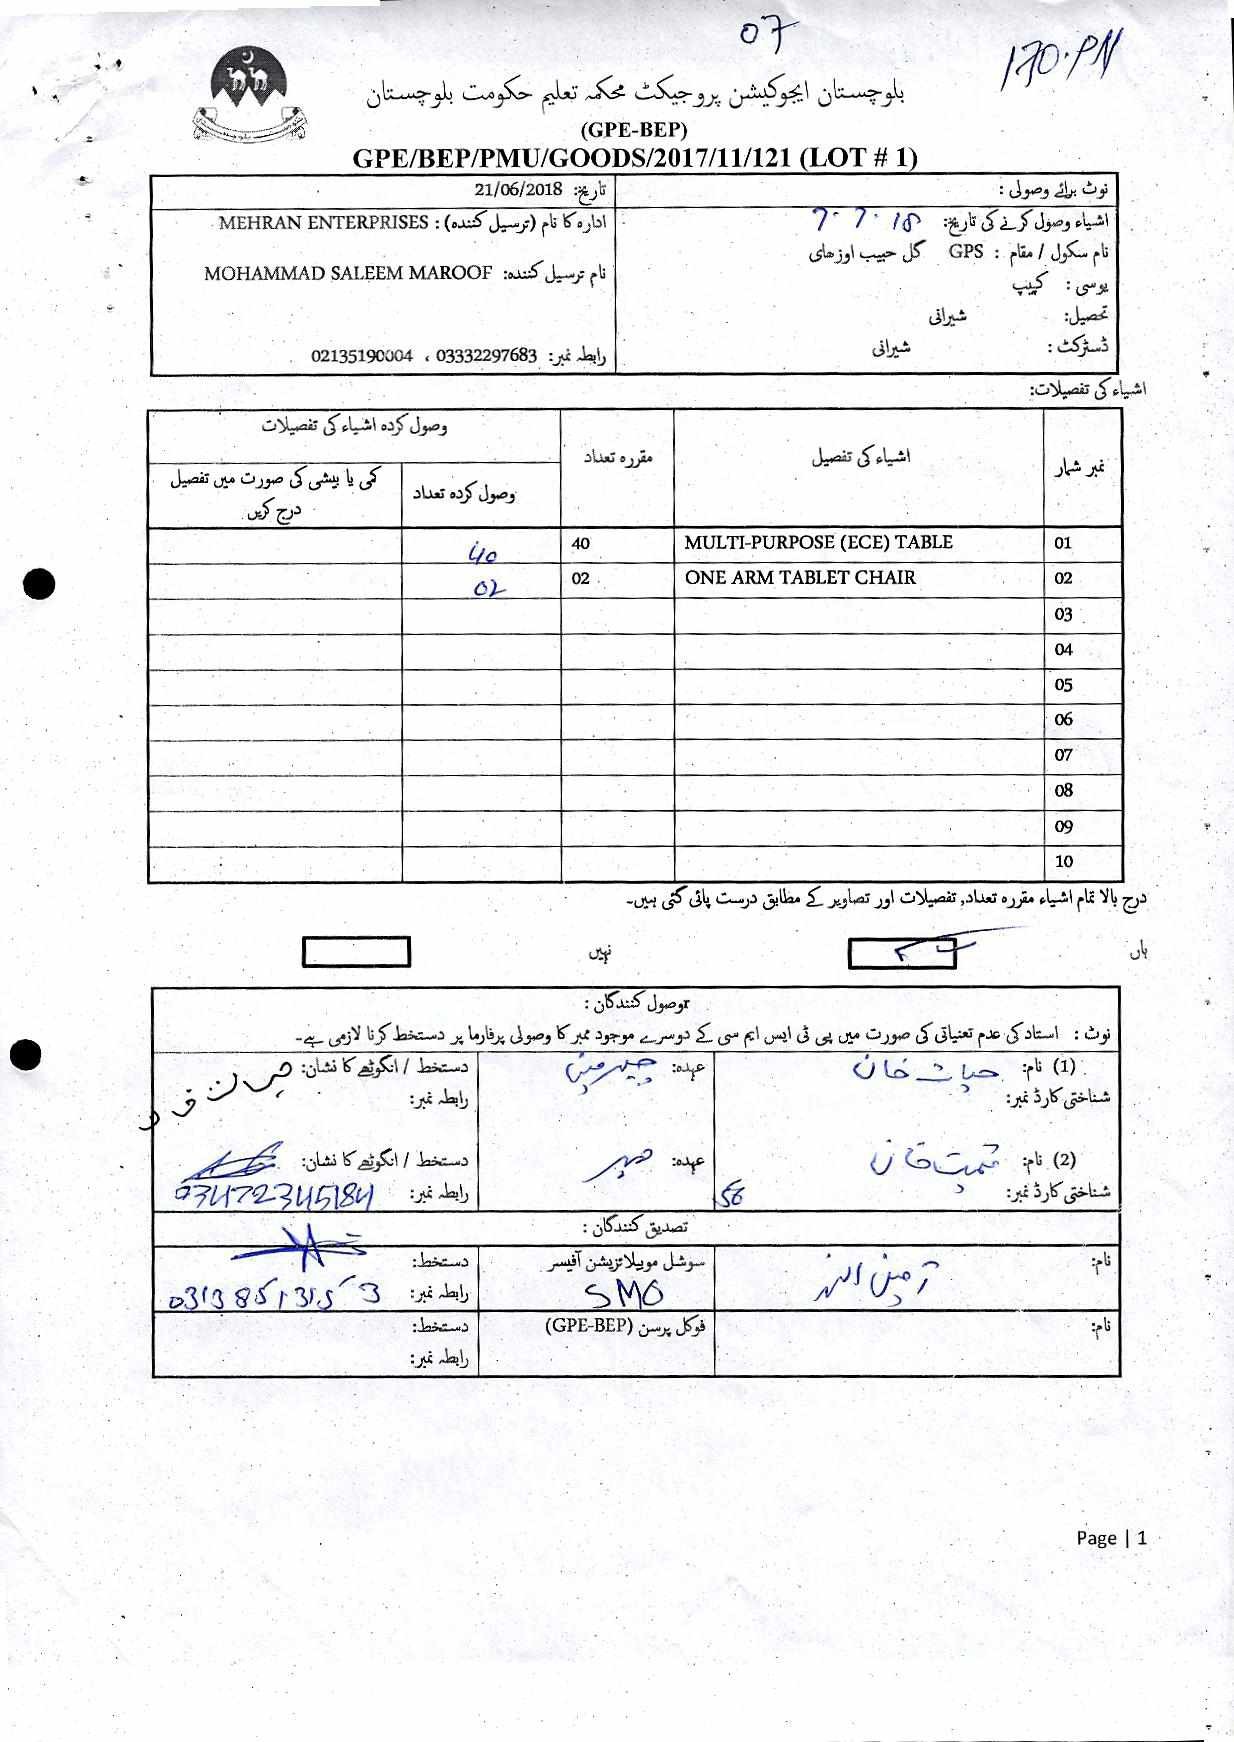 07
170.PN
بلوچستان ایجوکیشن پروجیکٹ محکمہ تعلیم حکومت بلوچستان
(GPE-BEP)
GPE/BEP/PMU/GOODS/2017/11/121 (LOT # 1)
نوٹ برائے وصولی :
تاریخ: 21/06/2018
اشیاء وصول کرنے کی تاریخ: 7-7-18
ادارہ کا نام (ترسیل کنندہ) : MEHRAN ENTERPRISES
نام سکول / مقام : GPS گل حبیب اوزھای
نام ترسیل کنندہ: MOHAMMAD SALEEM MAROOF
یوسی : کیپ
تحصیل: شیرانی
ڈسٹرکٹ : شیرانی
رابطہ نمبر: 03332297683 ، 02135190004
اشیاء کی تفصیلات:
نمبر شمار اشیاء کی تفصیل مقررہ تعداد وصول کردہ اشیاء کی تفصیلات
وصول کردہ تعداد کمی یا بیشی کی صورت میں تفصیل درج کریں
01 MULTI-PURPOSE (ECE) TABLE 40 40
02 ONE ARM TABLET CHAIR 02 02
03
04
05
06
07
08
09
10
درج بالا تمام اشیاء مقررہ تعداد, تفصیلات اور تصاویر کے مطابق درست پائی گئی ہیں۔
ہاں نہیں
وصول کنندگان :
نوٹ : استاد کی عدم تعنیاتی کی صورت میں پی ٹی ایس ایم سی کے دوسرے موجود ممبر کا وصولی پرفارما پر دستخط کرنا لازمی ہے۔
(1) نام: حیات خان عہدہ: چیرمین دستخط / انگوٹھے کا نشان:
شناختی کارڈ نمبر: رابطہ نمبر:
(2) نام: عہدہ: ممبر دستخط / انگوٹھے کا نشان:
شناختی کارڈ نمبر: 56 رابطہ نمبر: 03472345184
تصدیق کنندگان :
نام: سوشل موبیلائزیشن آفیسر دستخط:
SMO رابطہ نمبر: 03138513153
نام: فوکل پرسن (GPE-BEP) دستخط:
رابطہ نمبر:
Page | 1